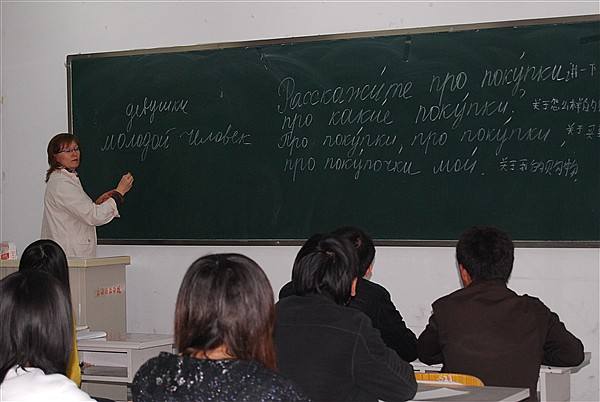 девушки
молодой человек
Расскажи́те про поку́пки, 讲一下
про какие поку́пки? 关于怎么样的
Про поку́пки, про поку́пки, 关于
про поку́почки мои́. 关于我的购物